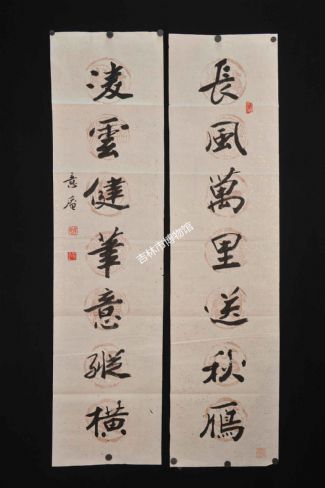 長風萬里送秋鴈
凌雲健筆意縱橫
意庵
吉林市博物馆